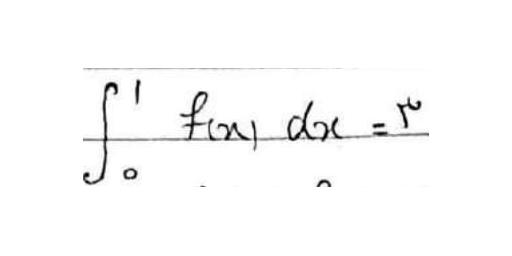 ∫₀¹ f(x) dx = ۳